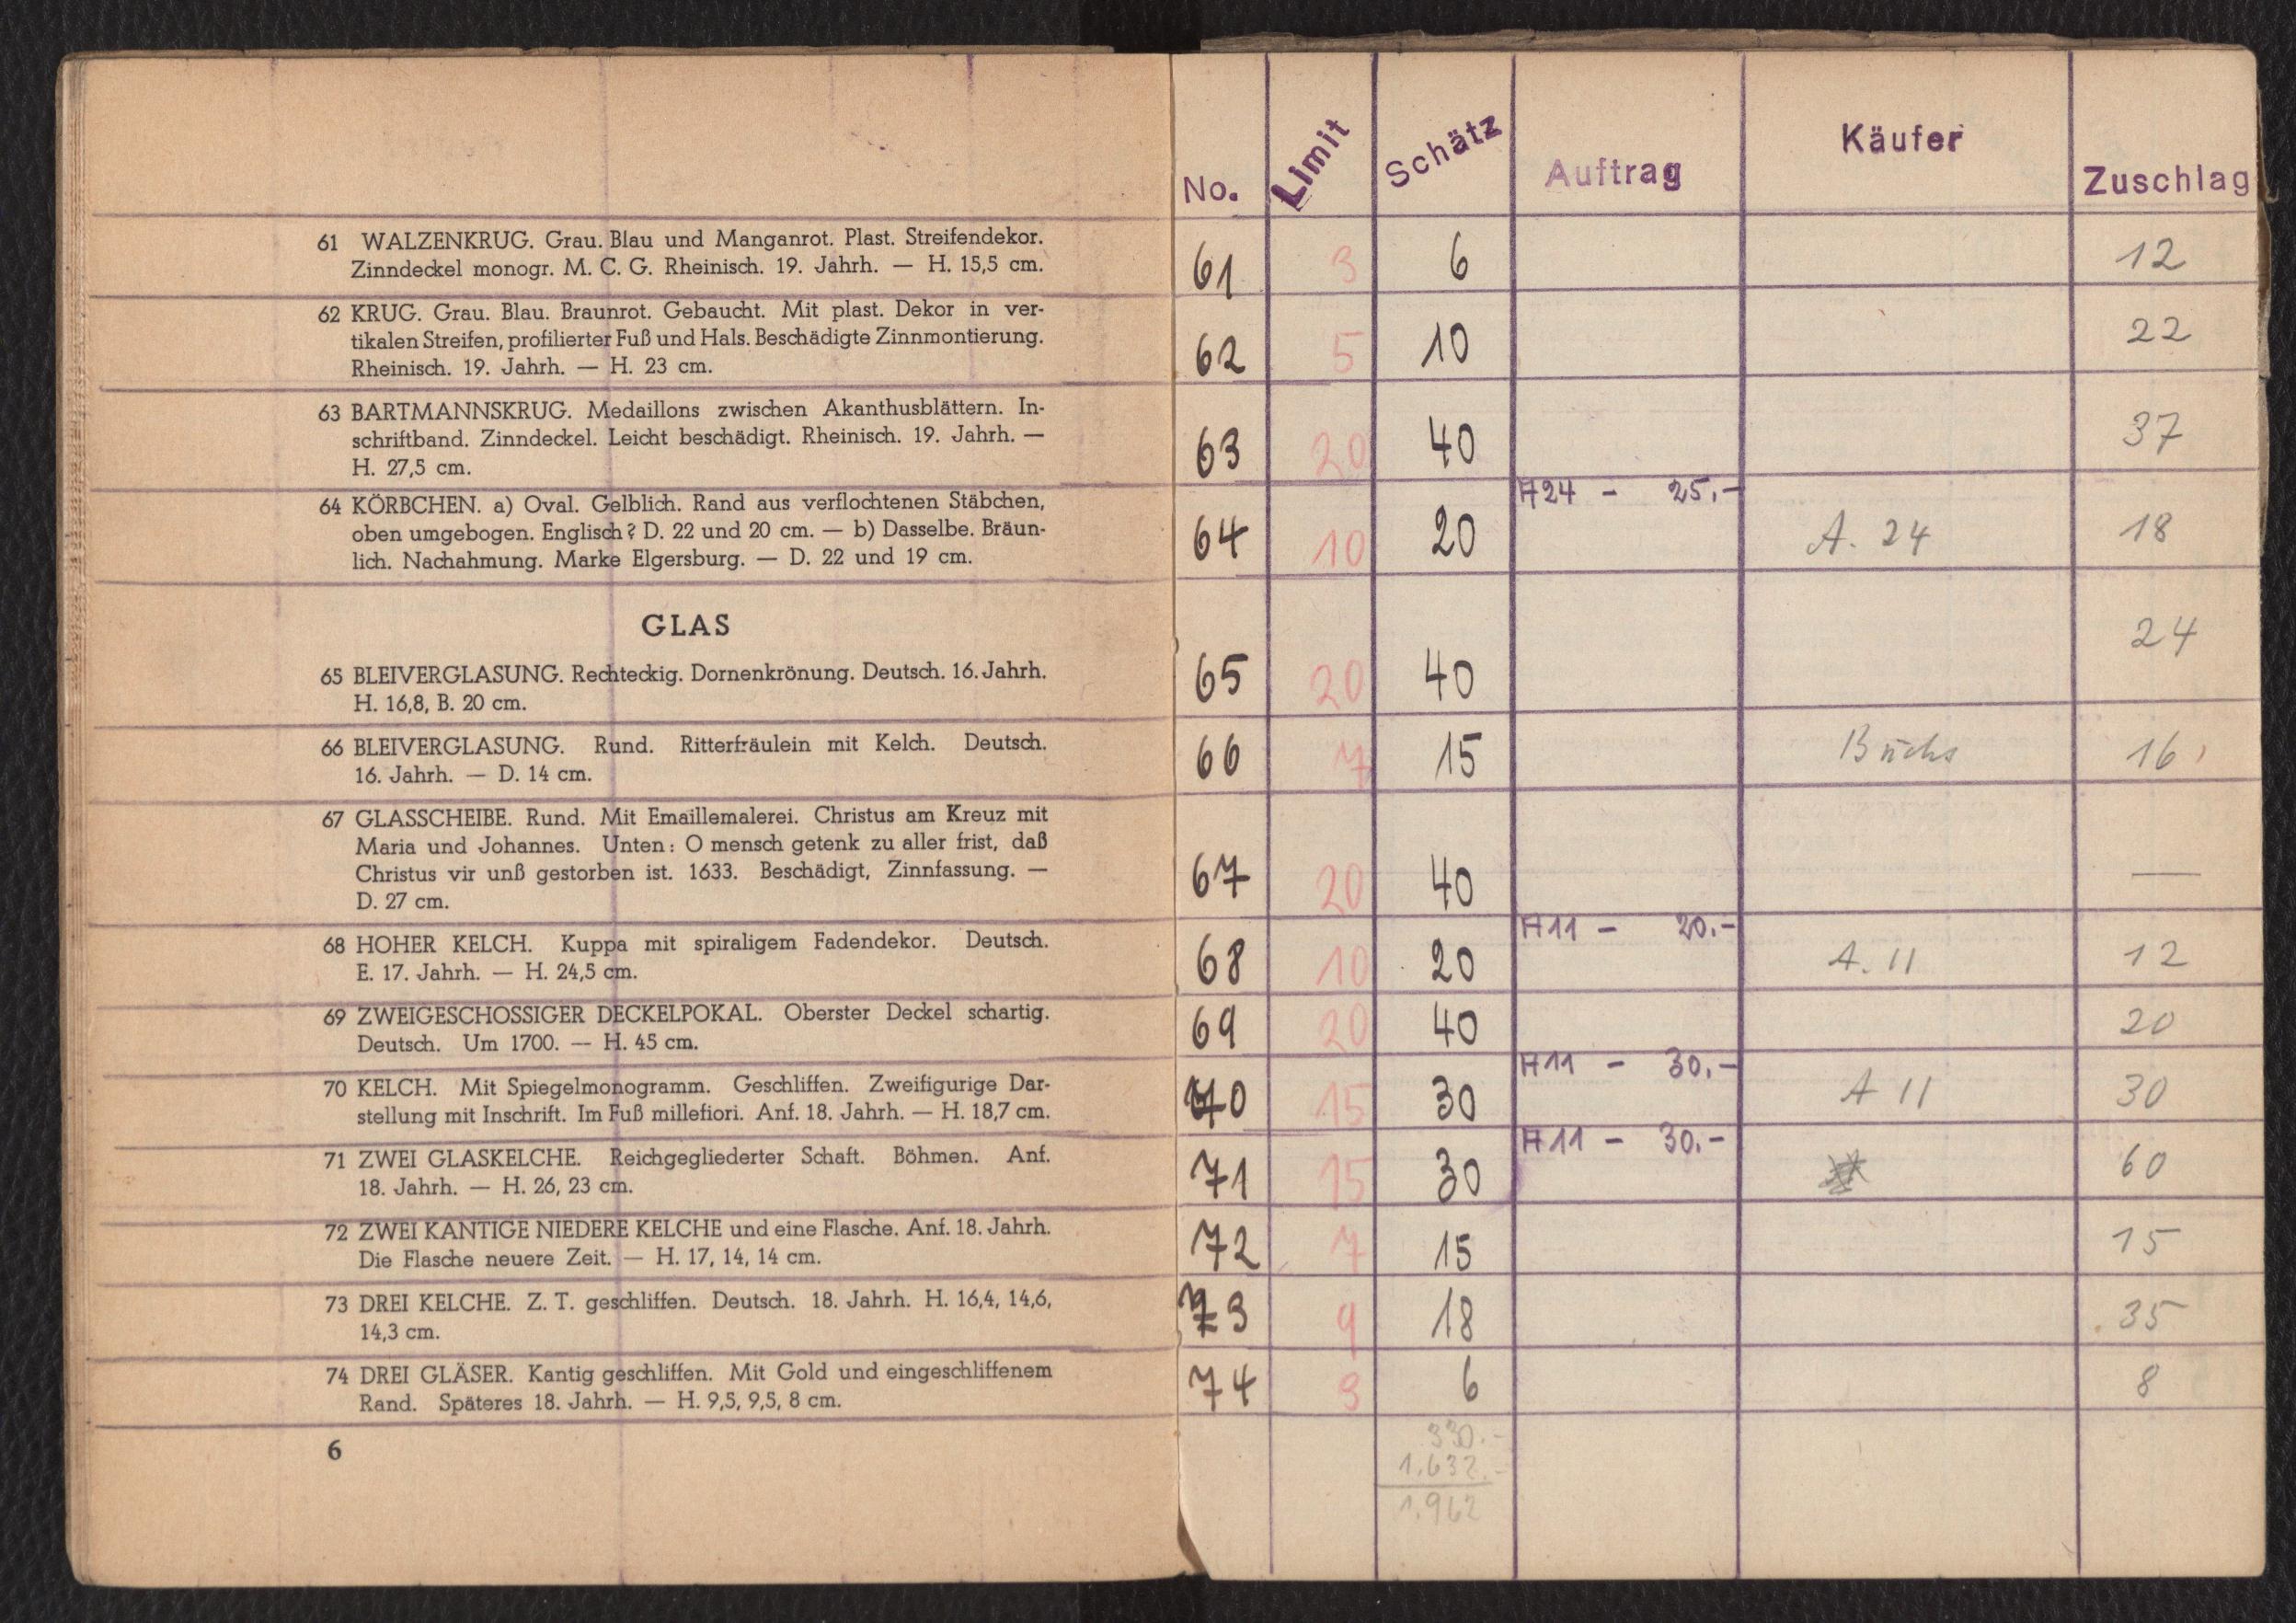 61 WALZENKRUG. Grau. Blau und Manganrot. Plast. Streifendekor.
Zinndeckel monogr. M. C. G. Rheinisch. 19. Jahrh. — H. 15,5 cm.
62 KRUG. Grau. Blau. Braunrot. Gebaucht. Mit plast. Dekor in ver-
tikalen Streifen, profilierter Fuß und Hals. Beschädigte Zinnmontierung.
Rheinisch. 19. Jahrh. — H. 23 cm.
63 BARTMANNSKRUG. Medaillons zwischen Akanthusblättern. In-
schriftband. Zinndeckel. Leicht beschädigt. Rheinisch. 19. Jahrh. —
H. 27,5 cm.
64 KÖRBCHEN. a) Oval. Gelblich. Rand aus verflochtenen Stäbchen,
oben umgebogen. Englisch? D. 22 und 20 cm. — b) Dasselbe. Bräun-
lich. Nachahmung. Marke Elgersburg. — D. 22 und 19 cm.
GLAS
65 BLEIVERGLASUNG. Rechteckig. Dornenkrönung. Deutsch. 16. Jahrh.
H. 16,8, B. 20 cm.
66 BLEIVERGLASUNG. Rund. Ritterfräulein mit Kelch. Deutsch.
16. Jahrh. — D. 14 cm.
67 GLASSCHEIBE. Rund. Mit Emaillemalerei. Christus am Kreuz mit
Maria und Johannes. Unten: O mensch getenk zu aller frist, daß
Christus vir unß gestorben ist. 1633. Beschädigt, Zinnfassung. —
D. 27 cm.
68 HOHER KELCH. Kuppa mit spiraligem Fadendekor. Deutsch.
E. 17. Jahrh. — H. 24,5 cm.
69 ZWEIGESCHOSSIGER DECKELPOKAL. Oberster Deckel schartig.
Deutsch. Um 1700. — H. 45 cm.
70 KELCH. Mit Spiegelmonogramm. Geschliffen. Zweifigurige Dar-
stellung mit Inschrift. Im Fuß millefiori. Anf. 18. Jahrh. — H. 18,7 cm.
71 ZWEI GLASKELCHE. Reichgegliederter Schaft. Böhmen. Anf.
18. Jahrh. — H. 26, 23 cm.
72 ZWEI KANTIGE NIEDERE KELCHE und eine Flasche. Anf. 18. Jahrh.
Die Flasche neuere Zeit. — H. 17, 14, 14 cm.
73 DREI KELCHE. Z. T. geschliffen. Deutsch. 18. Jahrh. H. 16,4, 14,6,
14,3 cm.
74 DREI GLÄSER. Kantig geschliffen. Mit Gold und eingeschliffenem
Rand. Späteres 18. Jahrh. — H. 9,5, 9,5, 8 cm.
6
No. Limit Schätz Auftrag Käufer Zuschlag
61 3 6 12
62 5 10 22
63 20 40 37
A24 - 25.-
64 10 20 A. 24 18
65 20 40 24
66 7 15 16
67 20 40 —
A11 - 20.-
68 10 20 A. 11 12
69 20 40 20
A11 - 30.-
70 15 30 A 11 30
A11 - 30.-
71 15 30 60
72 7 15 15
73 9 18 35
74 3 6 8
330.-
1.632.-
1.962